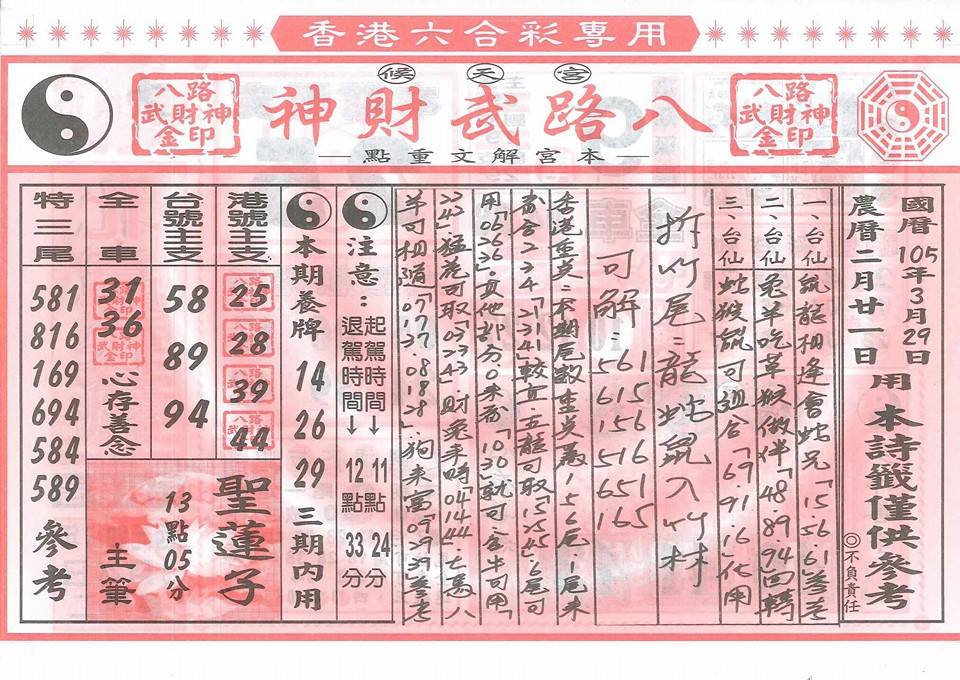 香港六合彩專用
候天宮
八路武財神
八路武財神金印
八路武財神金印
—本宮解文重點—
國曆105年3月29日
農曆二月廿一日
用本詩籤僅供參考
◎不負責任
一、台仙 鼠龍相逢會蛇兄「15.56.61參考
二、台仙 兔羊吃草猴做伴「48.89.94回轉
三、台仙 蛇猴鼠可迎合「69.91.16」化用
拆竹尾:龍蛇鼠入竹林
可解:561 615 156 516 651 165
本港重点:本期尾數重点為1.5.6尾.1尾來
配合2.3.4「21.31.41」較五.五龍可取「15.25.45」6尾可
用「06.26.36」其他部分0來為「10.30」就可.合牛可用「
22.42」猛虎可取「03.23.43」財兔手時「04.14.44.七馬八
羊可相隨「07.17.37.08.18.28」狗來富「09.29.39參考
注意:
起駕時間↓11點24分
退駕時間↓12點33分
本期養牌
14
26
29
三期內用
港號主支
25
28
39
44
台號主支
58
89
94
全車
31
36
心存善念
特三尾
581
816
169
694
584
589
參考
聖蓮子
13點05分
主筆